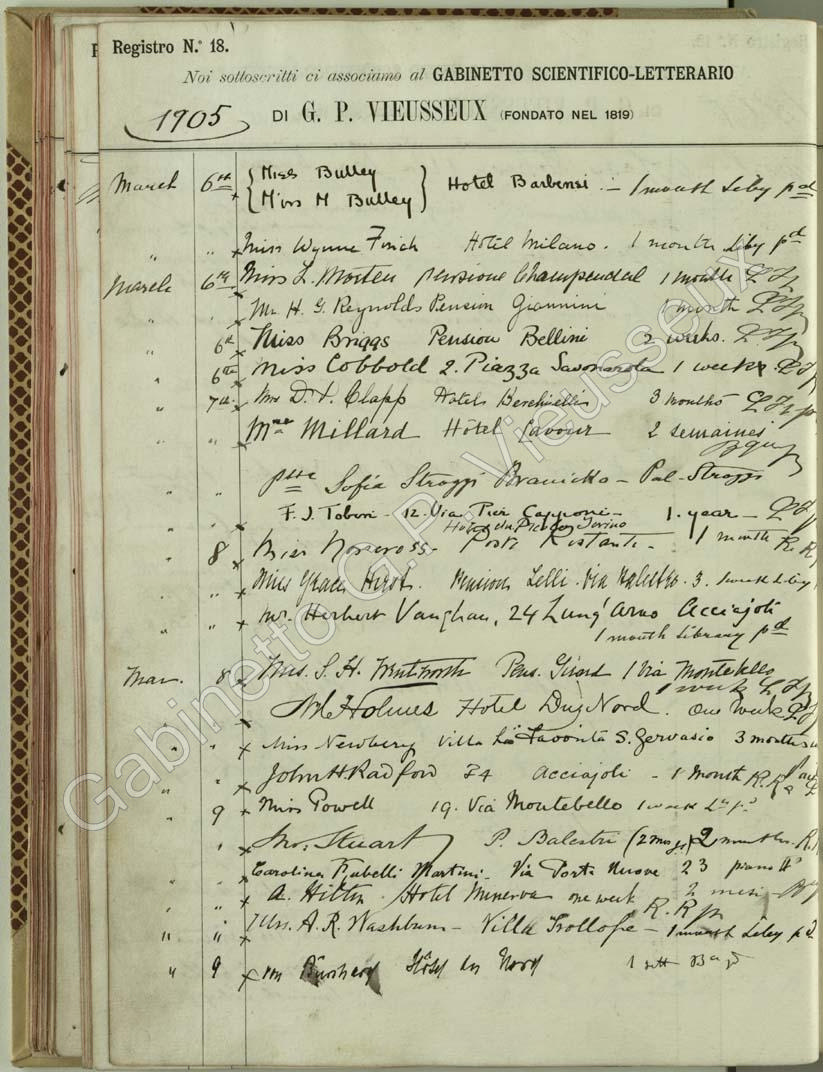 Registro N.° 18.
Noi sottoscritti ci associamo al GABINETTO SCIENTIFICO-LETTERARIO
1905 DI G. P. VIEUSSEUX (FONDATO NEL 1819)
March 6th Miss Bulley
Miss M Bulley Hotel Barbensi :- 1 month Liby pd
" " Miss Wynne Finch Hotel Milano. 1 month Liby pd
March 6th Miss L. Morten pensione Champendal 1 month
" " Mr. H. G. Reynolds Pension Giannini 1 month
" 6th Miss Briggs Pension Bellini 2 weeks.
" 6th Miss Cobbold 2. Piazza Savonarola 1 week.
" 7th Clapp Hotel 3 months
" " Mme Millard Hôtel Cavour 2 semaines
" " Sofia Strozzi Branicka - Pal. Strozzi
" " F. J. - 12. Via Pier Capponi - 1. year -
" 8 Miss Norcross - Poste Restante - 1 month R. R.
" " Miss Grace Pension Lelli. Via 3.
" " Mr. Herbert Vaughan, 24 Lung' Arno Acciajoli
1 month Library pd
Mar. 8 Mrs. S. H. Wentworth Pens. Girard 1 Via Montebello
1 week
Holmes Hotel Du Nord. one week
" " Miss Newbery Villa La Favorita S. Gervasio 3 months
" " John H Radford 24 Acciajoli - 1 Month R. R.
" 9 Miss Powell 19. Via Montebello 1 week
" Stuart P. Balestri 2 months. R.
" " Carolina Martini - Via Porta Nuova 23 piano
" " A. Hotel Minerva one week 2 mesi
R. R
" " Mrs. A. R. Washburn - Villa Trollope - 1 month Liby pd
" 9 Hôtel du Nord 1
Gabinetto G.P. Vieusseux